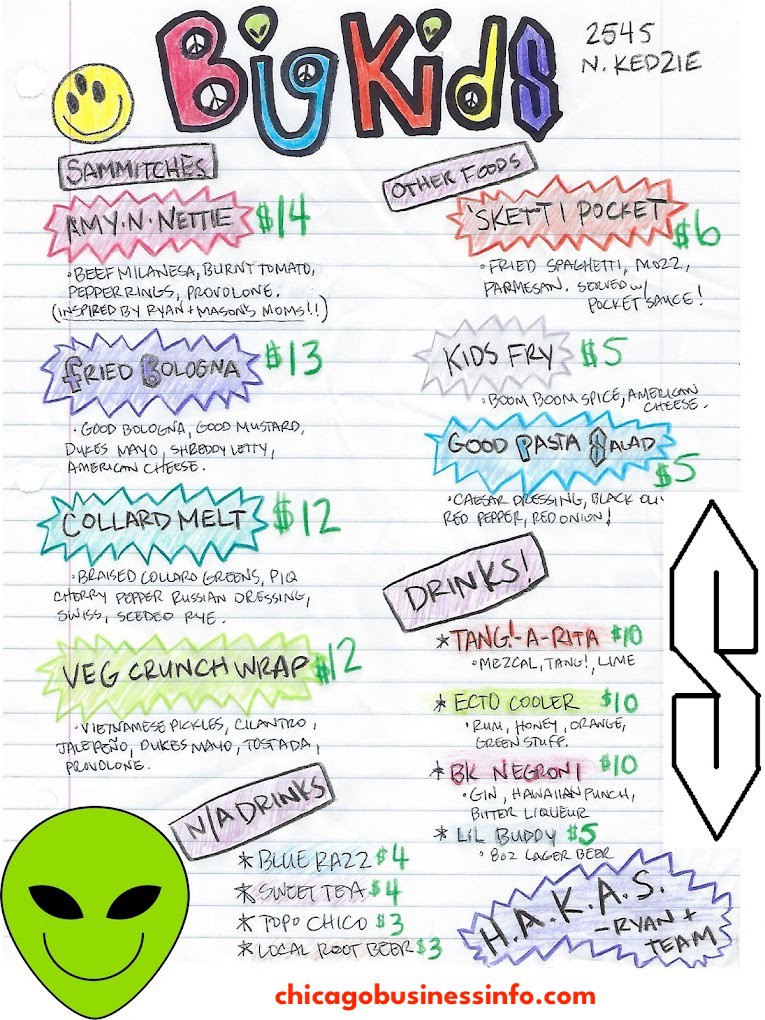 BIG KIDS
2545
N. KEDZIE
SAMMITCHES
AMY·N·NETTIE $14
·BEEF MILANESA, BURNT TOMATO,
PEPPER RINGS, PROVOLONE.
(INSPIRED BY RYAN + MASON'S MOMS!!)
FRIED BOLOGNA $13
·GOOD BOLOGNA, GOOD MUSTARD,
DUKES MAYO, SHREDDY LETTY,
AMERICAN CHEESE.
COLLARD MELT $12
·BRAISED COLLARD GREENS, PIQ
CHERRY PEPPER RUSSIAN DRESSING,
SWISS, SEEDED RYE.
VEG CRUNCH WRAP $12
·VIETNAMESE PICKLES, CILANTRO,
JALEPEÑO, DUKES MAYO, TOSTADA,
PROVOLONE.
OTHER FOODS
'SKETTI POCKET $6
·FRIED SPAGHETTI, MOZZ,
PARMESAN. SERVED W/
POCKET SAUCE!
KIDS FRY $5
·BOOM BOOM SPICE, AMERICAN
CHEESE.
GOOD PASTA SALAD $5
·CAESAR DRESSING, BLACK OLIV
RED PEPPER, RED ONION!
DRINKS!
*TANG!-A-RITA $10
·MEZCAL, TANG!, LIME
*ECTO COOLER $10
·RUM, HONEY, ORANGE,
GREEN STUFF.
*BK NEGRONI $10
·GIN, HAWAIIAN PUNCH,
BITTER LIQUEUR
*LIL BUDDY $5
·8OZ LAGER BEER
N/A DRINKS
*BLUE RAZZ $4
*SWEET TEA $4
*TOPO CHICO $3
*LOCAL ROOT BEER $3
H.A.K.A.S.
-RYAN +
TEAM
chicagobusinessinfo.com